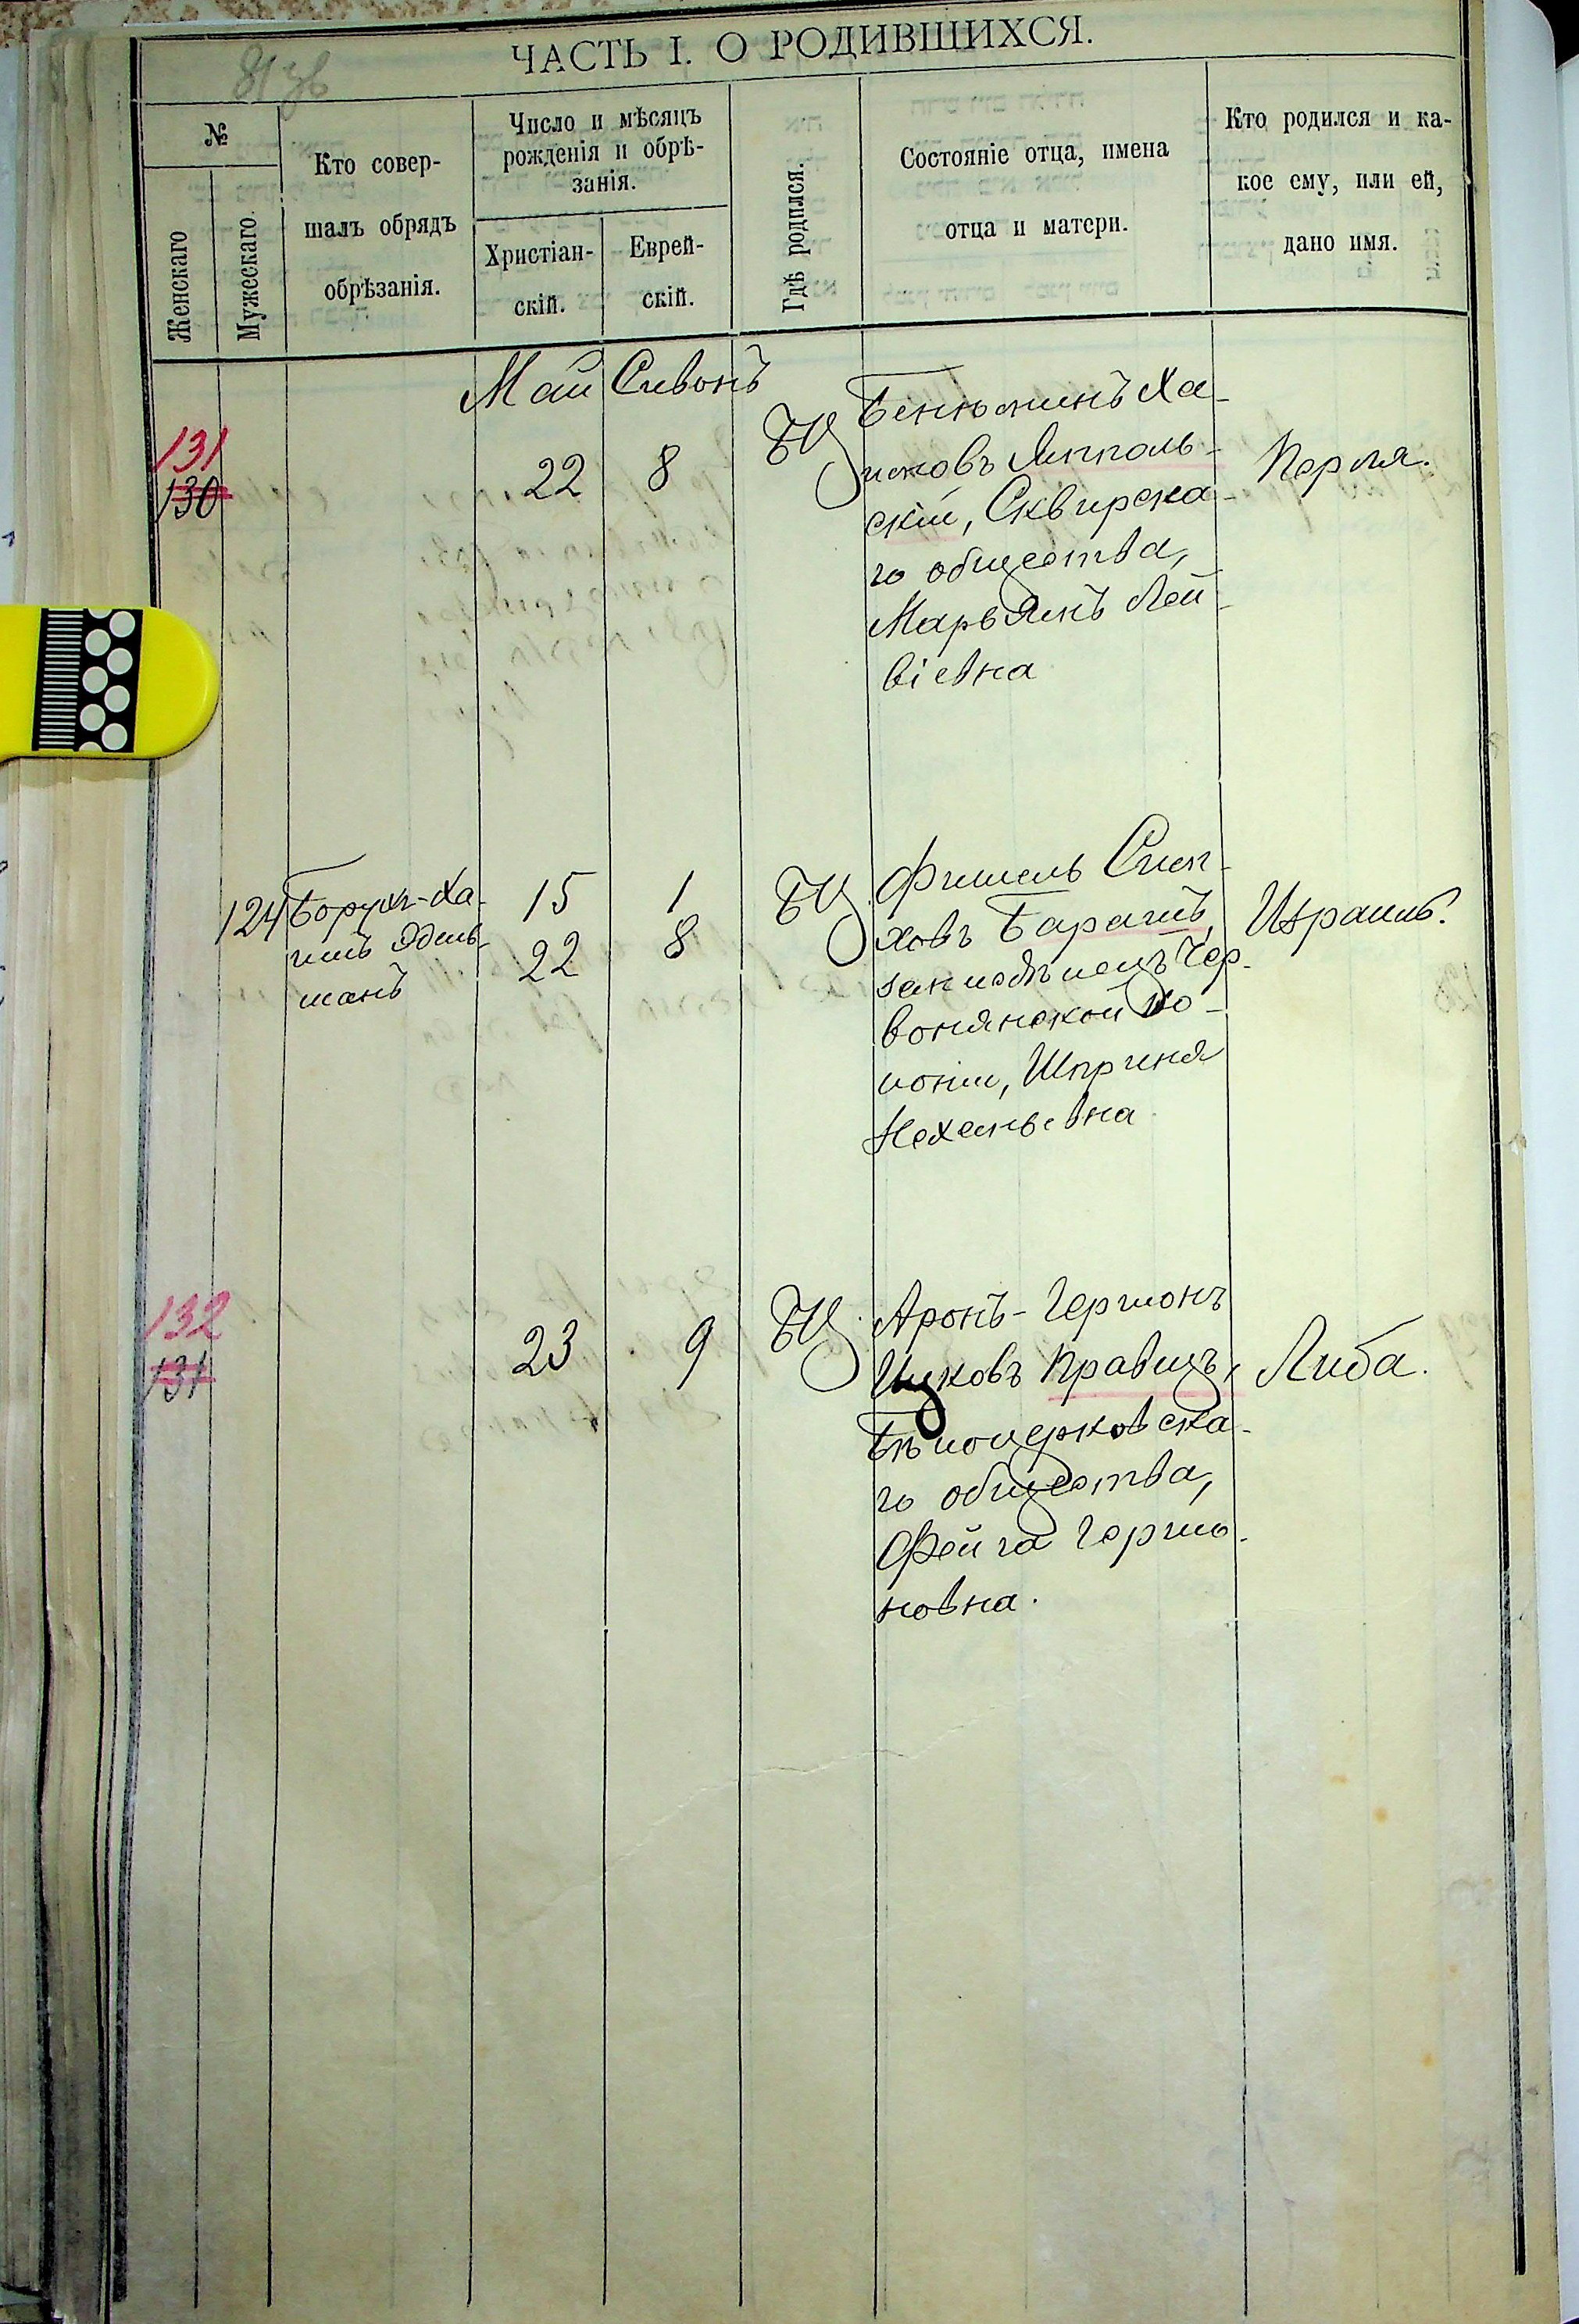 81 зв
ЧАСТЬ I. О РОДИВШИХСЯ.
№
Женскаго
Мужескаго.
Кто совер-
шалъ обрядъ
обрѣзанія.
Число и мѣсяцъ
рожденія и обрѣ-
занія.
Христіан-
скій.
Еврей-
скій.
Гдѣ родился.
Состояніе отца, имена
отца и матери.
Кто родился и ка-
кое ему, или ей,
дано имя.
Май Сивонъ
131
130
22 8 БЦ
Бенюминъ Ха-
имовъ Ямполь-
скій, Сквирска-
го общества,
Марьямъ Лей-
віевна
Перля.
124
Борухъ-Ха-
имъ Эдель-
манъ
15 1
22 8
БЦ
Фишель Сим-
ховъ Барашъ,
земледѣлецъ Чер-
вонянской ко-
лоніи, Шприня
Нехемьевна
Израиль.
132
131
23 9 БЦ
Аронъ-Гершонъ
Ицковъ Кравецъ,
Бѣлоцерковска-
го общества,
Фейга Гершо-
новна.
Либа.